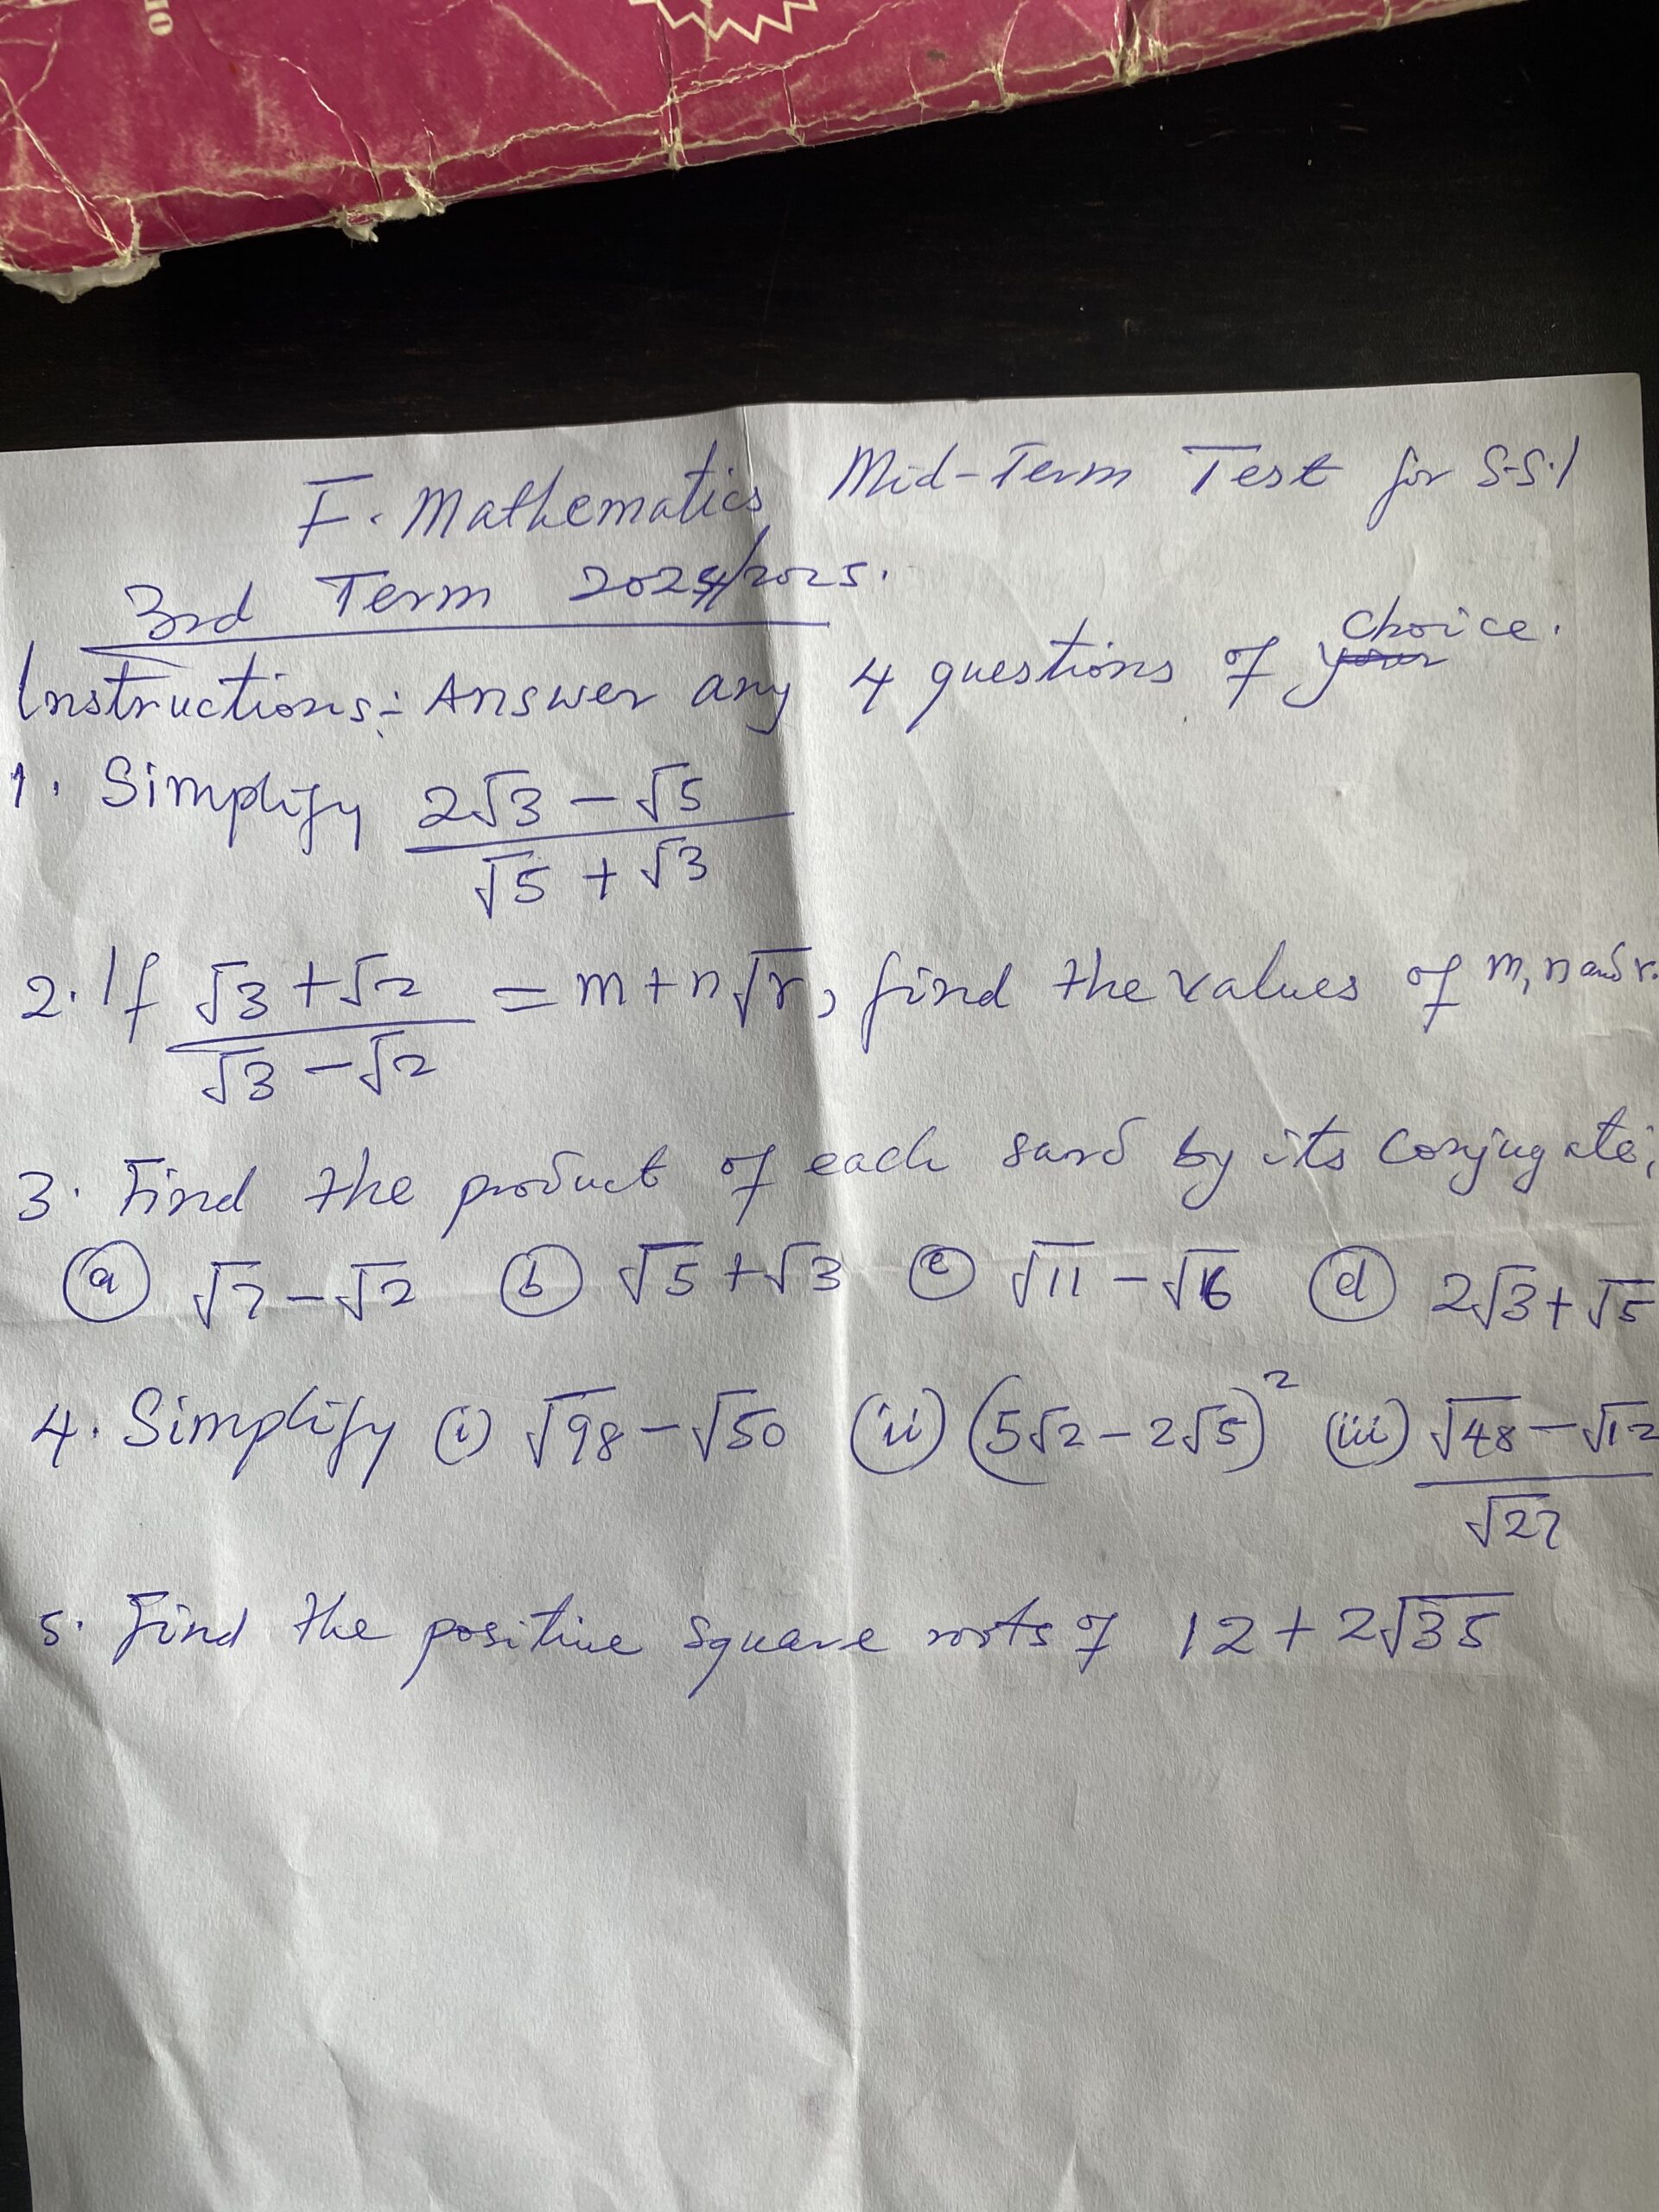 OI
F. Mathematics Mid-Term Test for S.S.1
3rd Term 2024/2025.
Instructions:- Answer any 4 questions of your choice.
1. Simplify (2√3 - √5)/(√5 + √3)
2. If (√3 + √2)/(√3 - √2) = m + n√r, find the values of m, n and r.
3. Find the product of each surd by its conjugate;
(a) √7 - √2 (b) √5 + √3 (c) √11 - √6 (d) 2√3 + √5
4. Simplify (i) √98 - √50 (ii) (5√2 - 2√5)² (iii) (√48 - √12)/√27
5. Find the positive square roots of 12 + 2√35